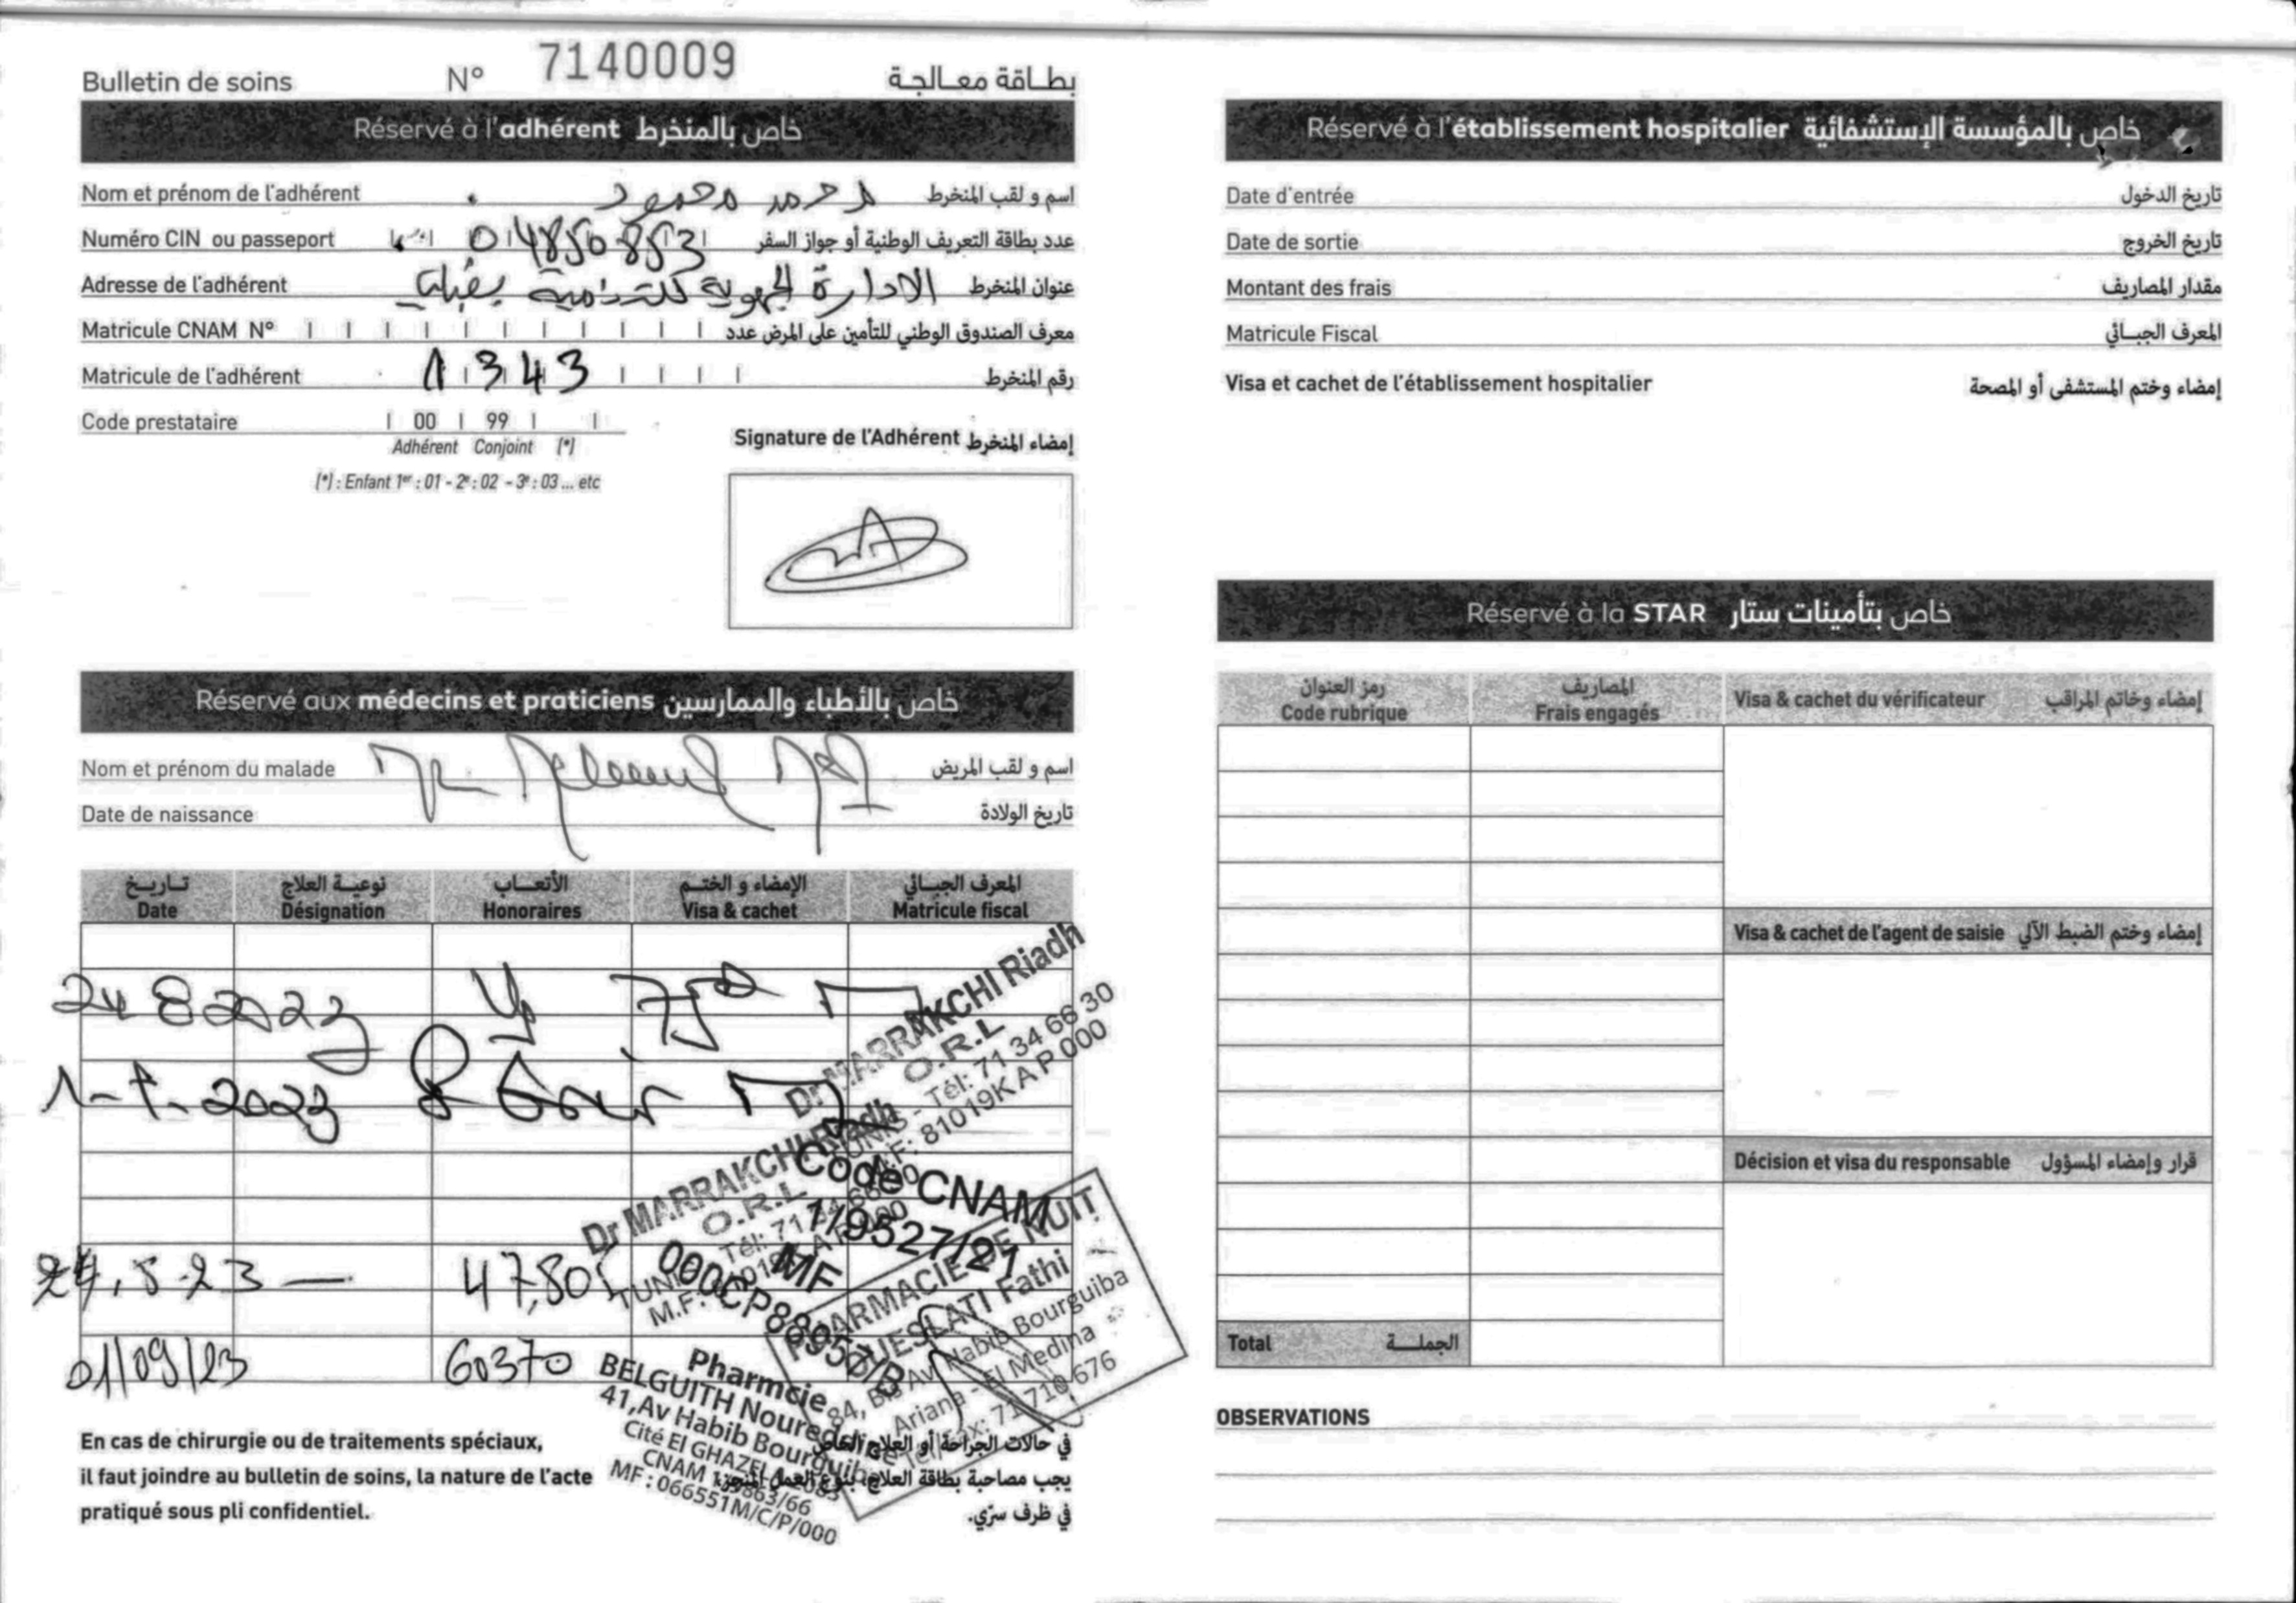 Bulletin de soins N° 7140009 بطاقة معالجة
Réservé à l'adhérent خاص بالمنخرط
Nom et prénom de l'adhérent محمود اسم و لقب المنخرط
Numéro CIN ou passeport 04850853 عدد بطاقة التعريف الوطنية أو جواز السفر
Adresse de l'adhérent الادارة الجهوية للتنمية بقبلي عنوان المنخرط
Matricule CNAM N° معرف الصندوق الوطني للتأمين على المرض عدد
Matricule de l'adhérent 1343 رقم المنخرط
Code prestataire 00 99
Adhérent Conjoint (*)
(*) : Enfant 1er : 01 - 2e : 02 - 3e : 03 ... etc
Signature de l'Adhérent إمضاء المنخرط
Réservé aux médecins et praticiens خاص بالأطباء والممارسين
Nom et prénom du malade اسم و لقب المريض
Date de naissance تاريخ الولادة
تاريخ نوعية العلاج الأتعاب الإمضاء و الختم المعرف الجبائي
Date Désignation Honoraires Visa & cachet Matricule fiscal
24 8 2023
2023
24.8.23 — 47,80
01/09/23 60370
Dr MARRAKCHI Riadh
O.R.L
TUNIS - Tél: 71 34 66 30
M.F: 81019K A P 000
Dr MARRAKCHI Riadh
O.R.L
Code CNAM
1/9527/21
MF
PHARMACIE DE NUIT
OUESLATI Fathi
84, Bis Av. Habib Bourguiba
Ariana - El Medina
Tel/Fax: 71 710 676
Pharmcie
BELGUITH Noureddine
41, Av Habib Bourguiba
Cité El GHAZELA 2083
MF : 066551M/C/P/000
En cas de chirurgie ou de traitements spéciaux,
il faut joindre au bulletin de soins, la nature de l'acte
pratiqué sous pli confidentiel.
في حالات الجراحة أو العلاج الخاص
يجب مصاحبة بطاقة العلاج، بنوع العمل المنجز،
في ظرف سرّي.
Réservé à l'établissement hospitalier خاص بالمؤسسة الإستشفائية
Date d'entrée تاريخ الدخول
Date de sortie تاريخ الخروج
Montant des frais مقدار المصاريف
Matricule Fiscal المعرف الجبائي
Visa et cachet de l'établissement hospitalier إمضاء وختم المستشفى أو المصحة
Réservé à la STAR خاص بتأمينات ستار
رمز العنوان المصاريف
Code rubrique Frais engagés Visa & cachet du vérificateur إمضاء وخاتم المراقب
Visa & cachet de l'agent de saisie إمضاء وختم الضبط الآلي
Décision et visa du responsable قرار وإمضاء المسؤول
Total الجملة
OBSERVATIONS